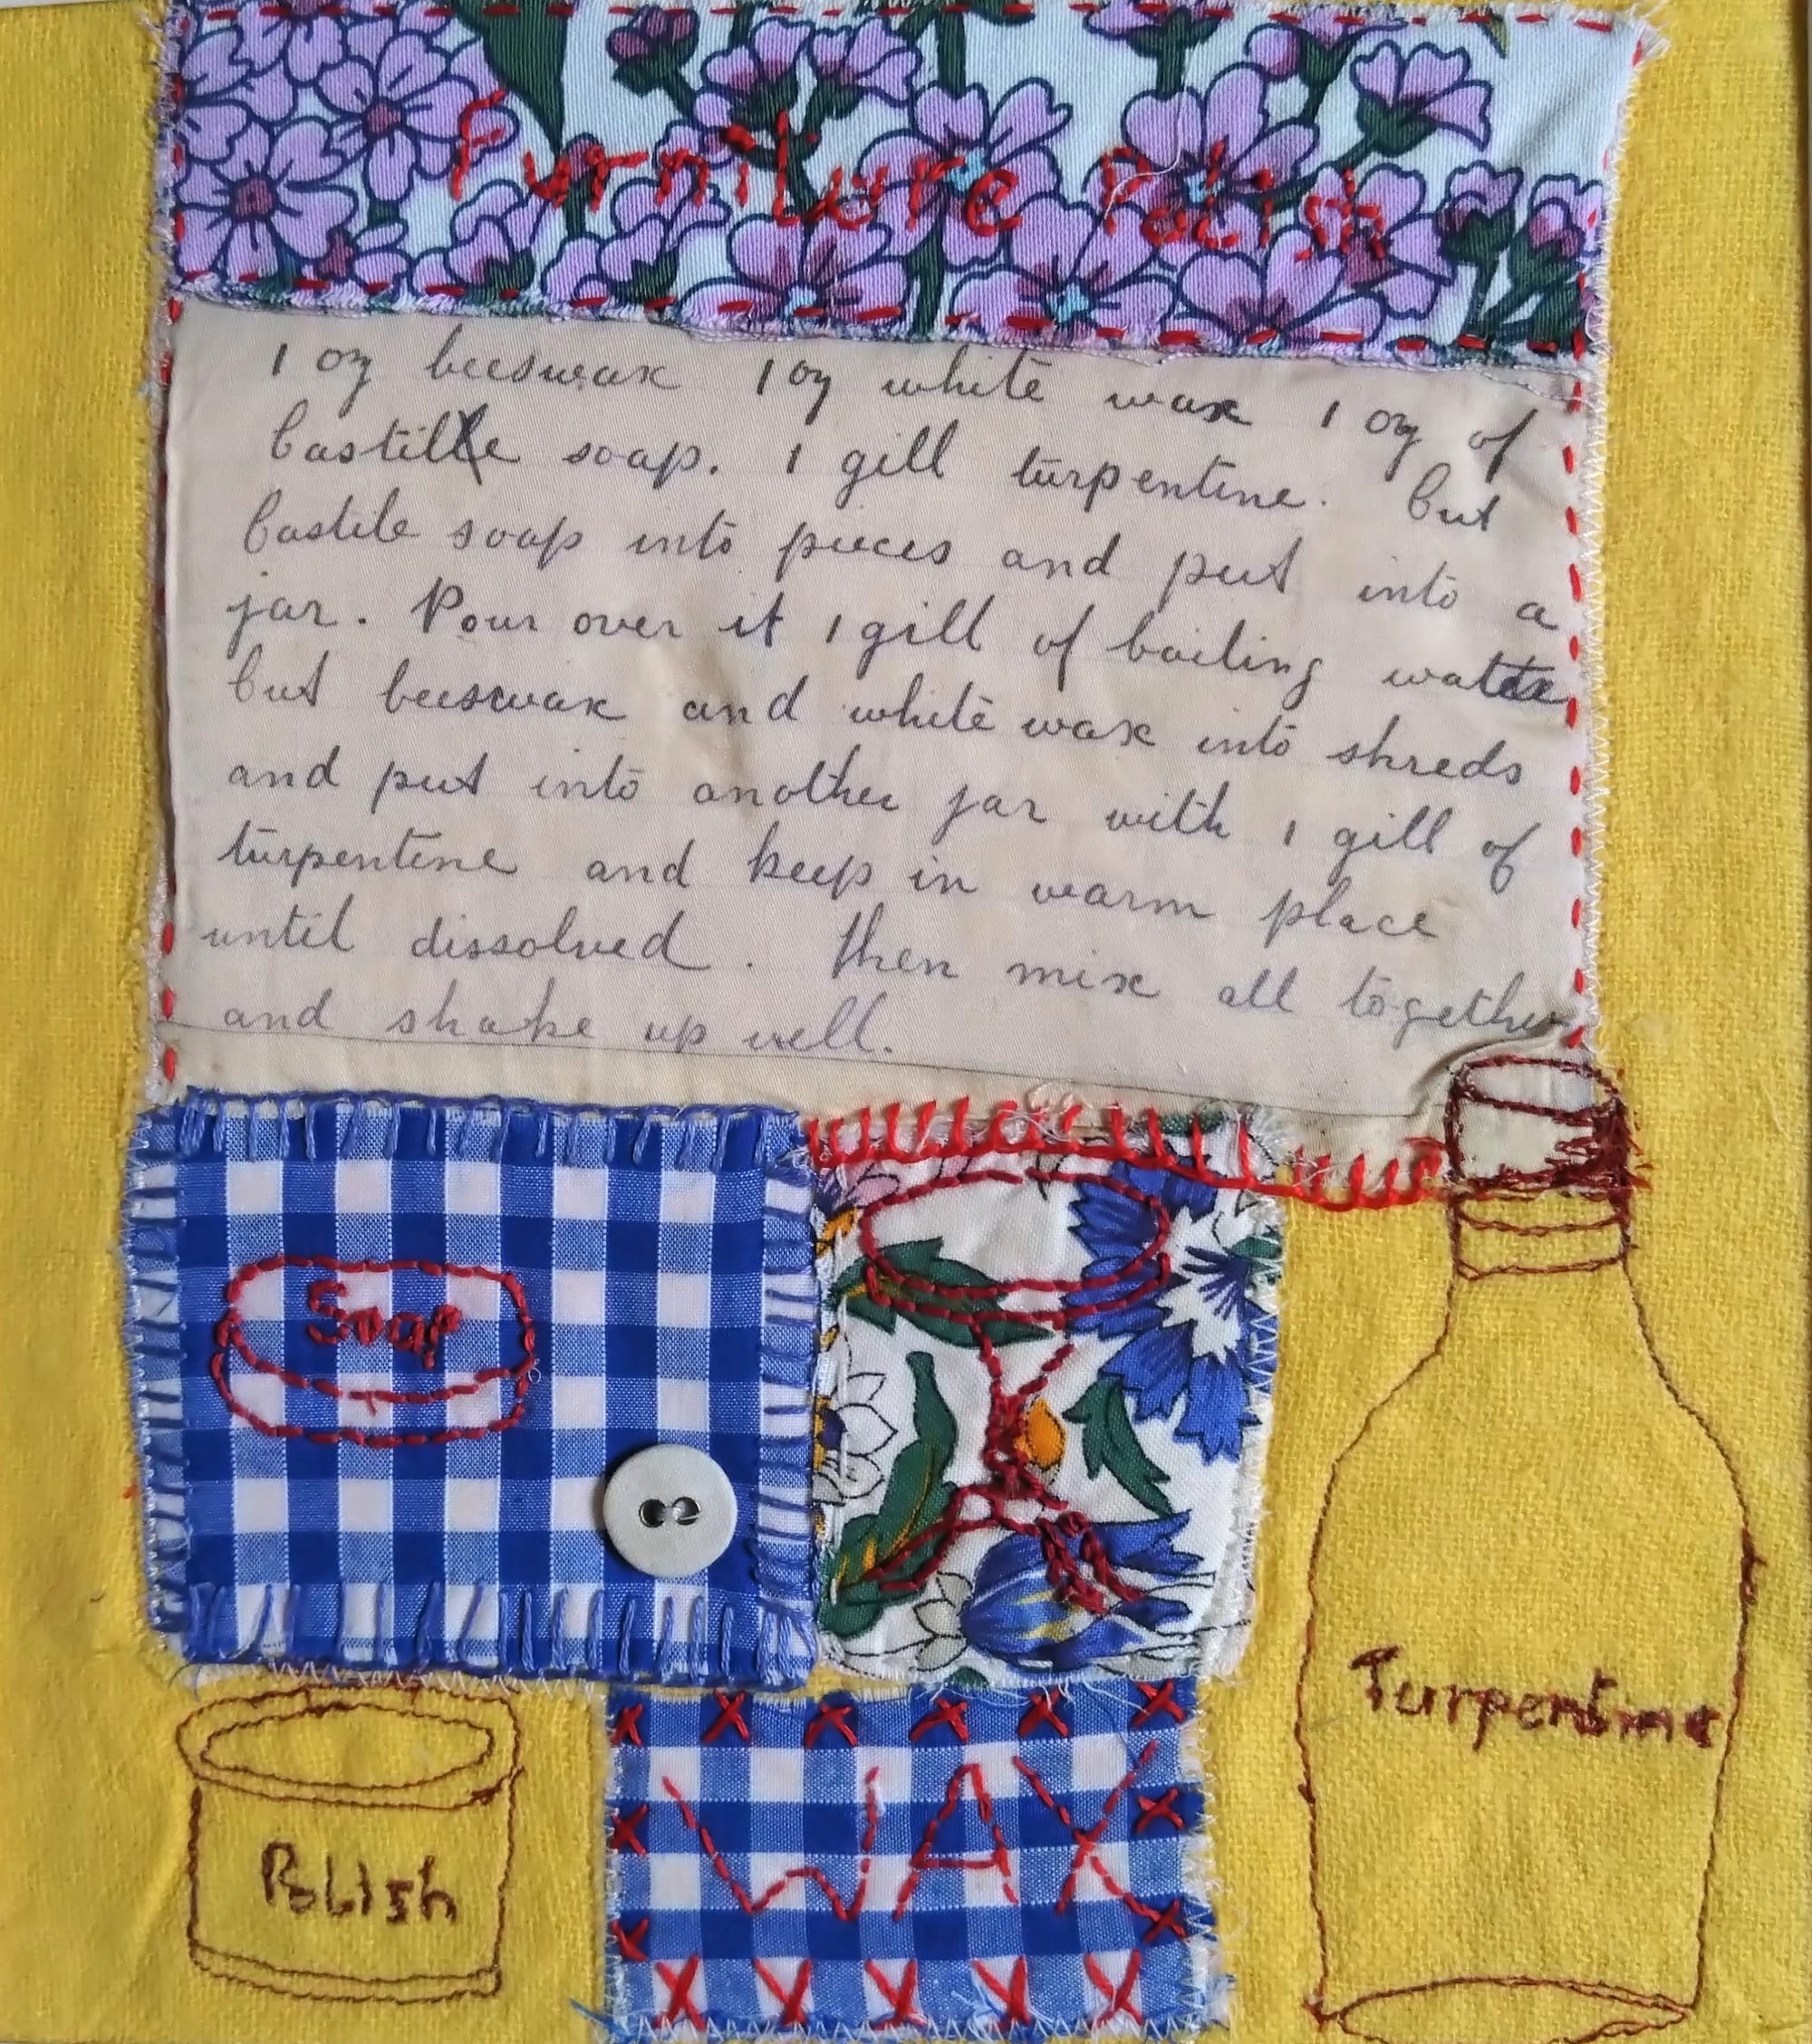 Furniture Polish
1 oz beeswax 1 oz white wax 1 oz of
Castille soap. 1 gill turpentine. Cut
Castile soap into pieces and put into a
jar. Pour over it 1 gill of boiling water
Cut beeswax and white wax into shreds
and put into another jar with 1 gill of
turpentine and keep in warm place
until dissolved. Then mix all together
and shake up well.
Soap
Turpentine
Polish
WAX